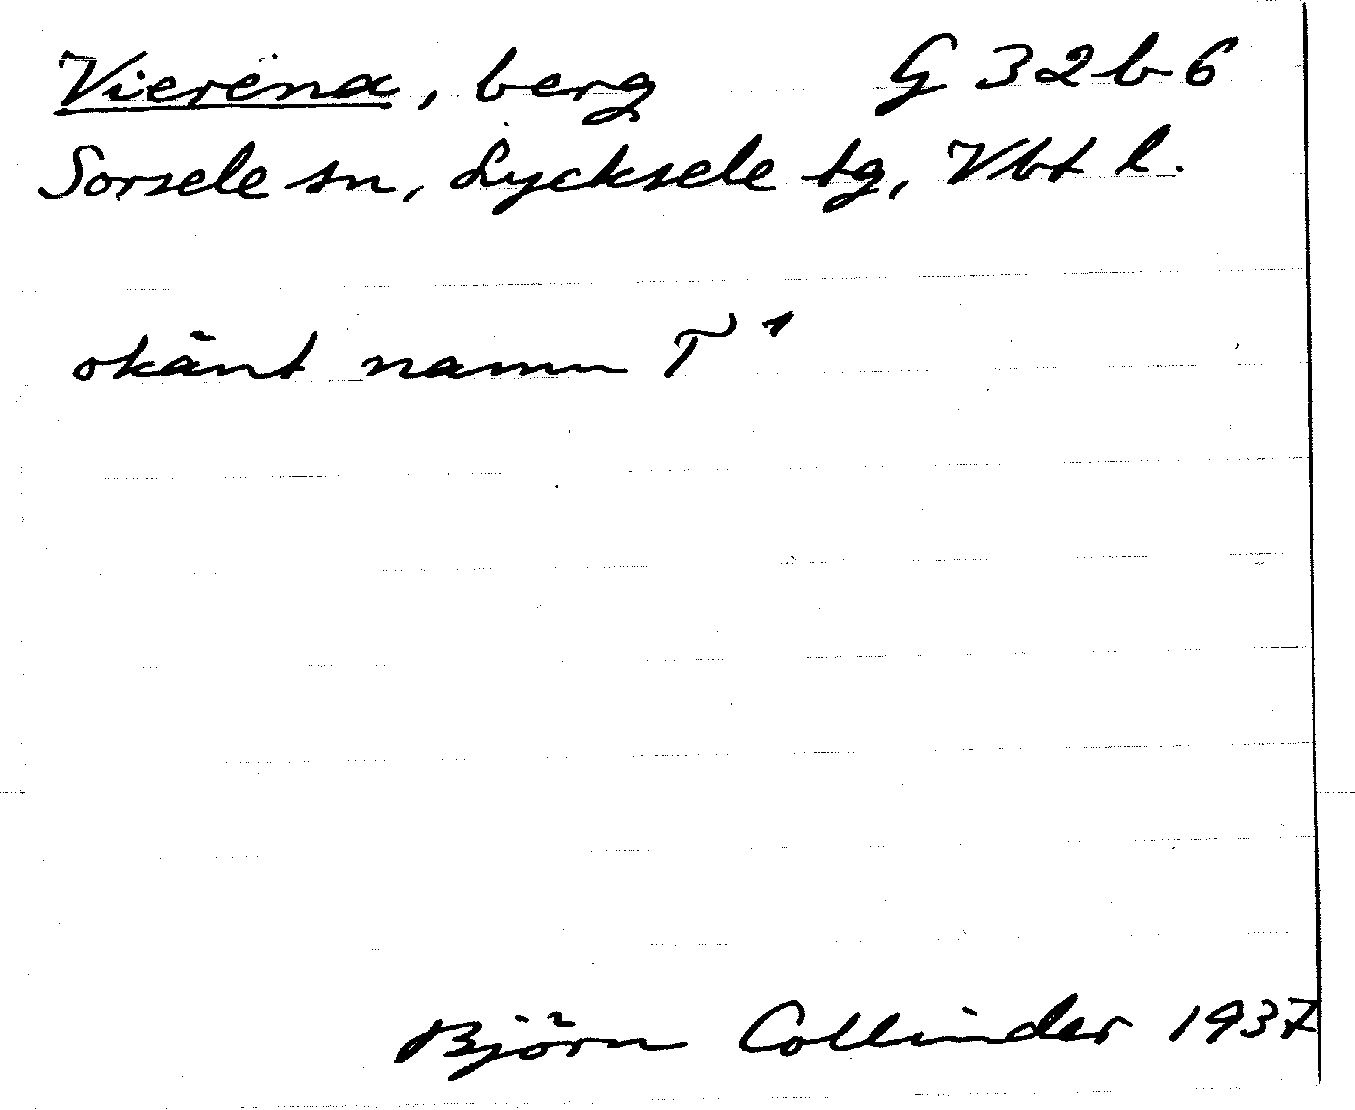 Vierena, berg G 32 b 6
Sorsele sn, Lycksele tg, Vbt l.
okänt namn T 1
Björn Collinder 1937